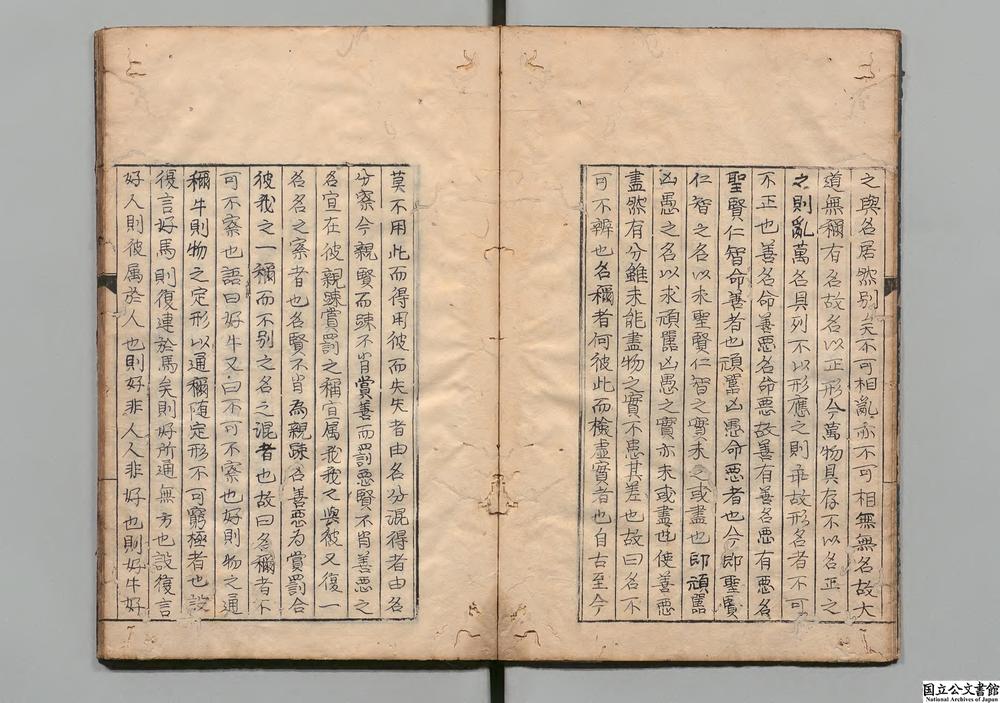 之與名居然別矣不可相亂亦不可相無無名故大
道無稱有名故名以正形今萬物具存不以名正之
之則亂萬名具列不以形應之則乖故形名者不可
不正也善名命善惡名命惡故善有善名惡有惡名
聖賢仁智命善者也頑嚚凶愚命惡者也今即聖賢
仁智之名以求聖賢仁智之實未之或盡也即頑嚚
凶愚之名以求頑嚚凶愚之實亦未或盡也使善惡
盡然有分雖未能盡物之實不患其差也故曰名不
可不辨也名稱者何彼此而檢虛實者也自古至今
莫不用此而得用彼而失失者由名分混得者由名
分察今親賢而踈不肖賞善而罰惡賢不肖善惡之
名宜在彼親踈賞罰之稱宜属我我之與彼又復一
名名之察者也名賢不肖為親踈名善惡为賞罰合
彼我之一稱而不別之名之混者也故曰名稱者不
可不察也語曰好牛又曰不可不察也好則物之通
稱牛則物之定形以通稱随定形不可窮極者也設
復言好馬則復連於馬矣則好所通無方也設復言
好人則彼属於人也則好非人人非好也則好牛好
国立公文書館
National Archives of Japan